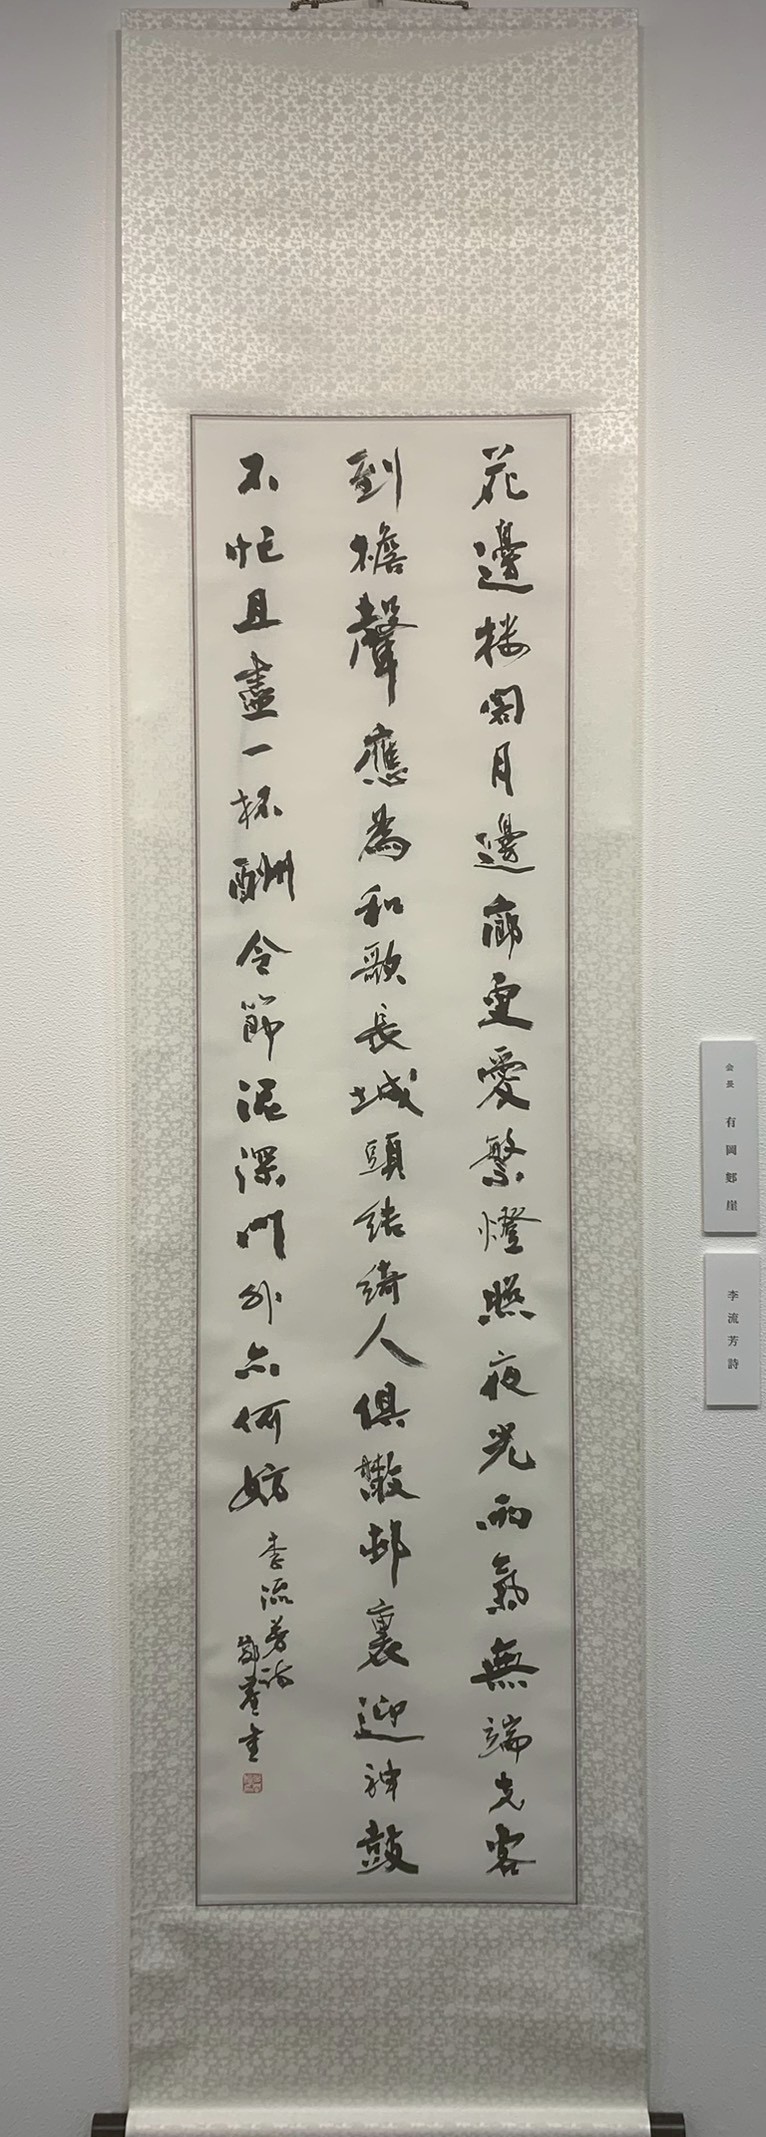 花邊楼閣月邊廊更愛繁燈照夜光雨氣無端先客
到檐聲應為和歌長城頭結綺人俱散邨裏迎神鼓
不忙且盡一杯酬令節泥深門外亦何妨
李流芳詩
崖書
会長 有岡 崖
李流芳詩